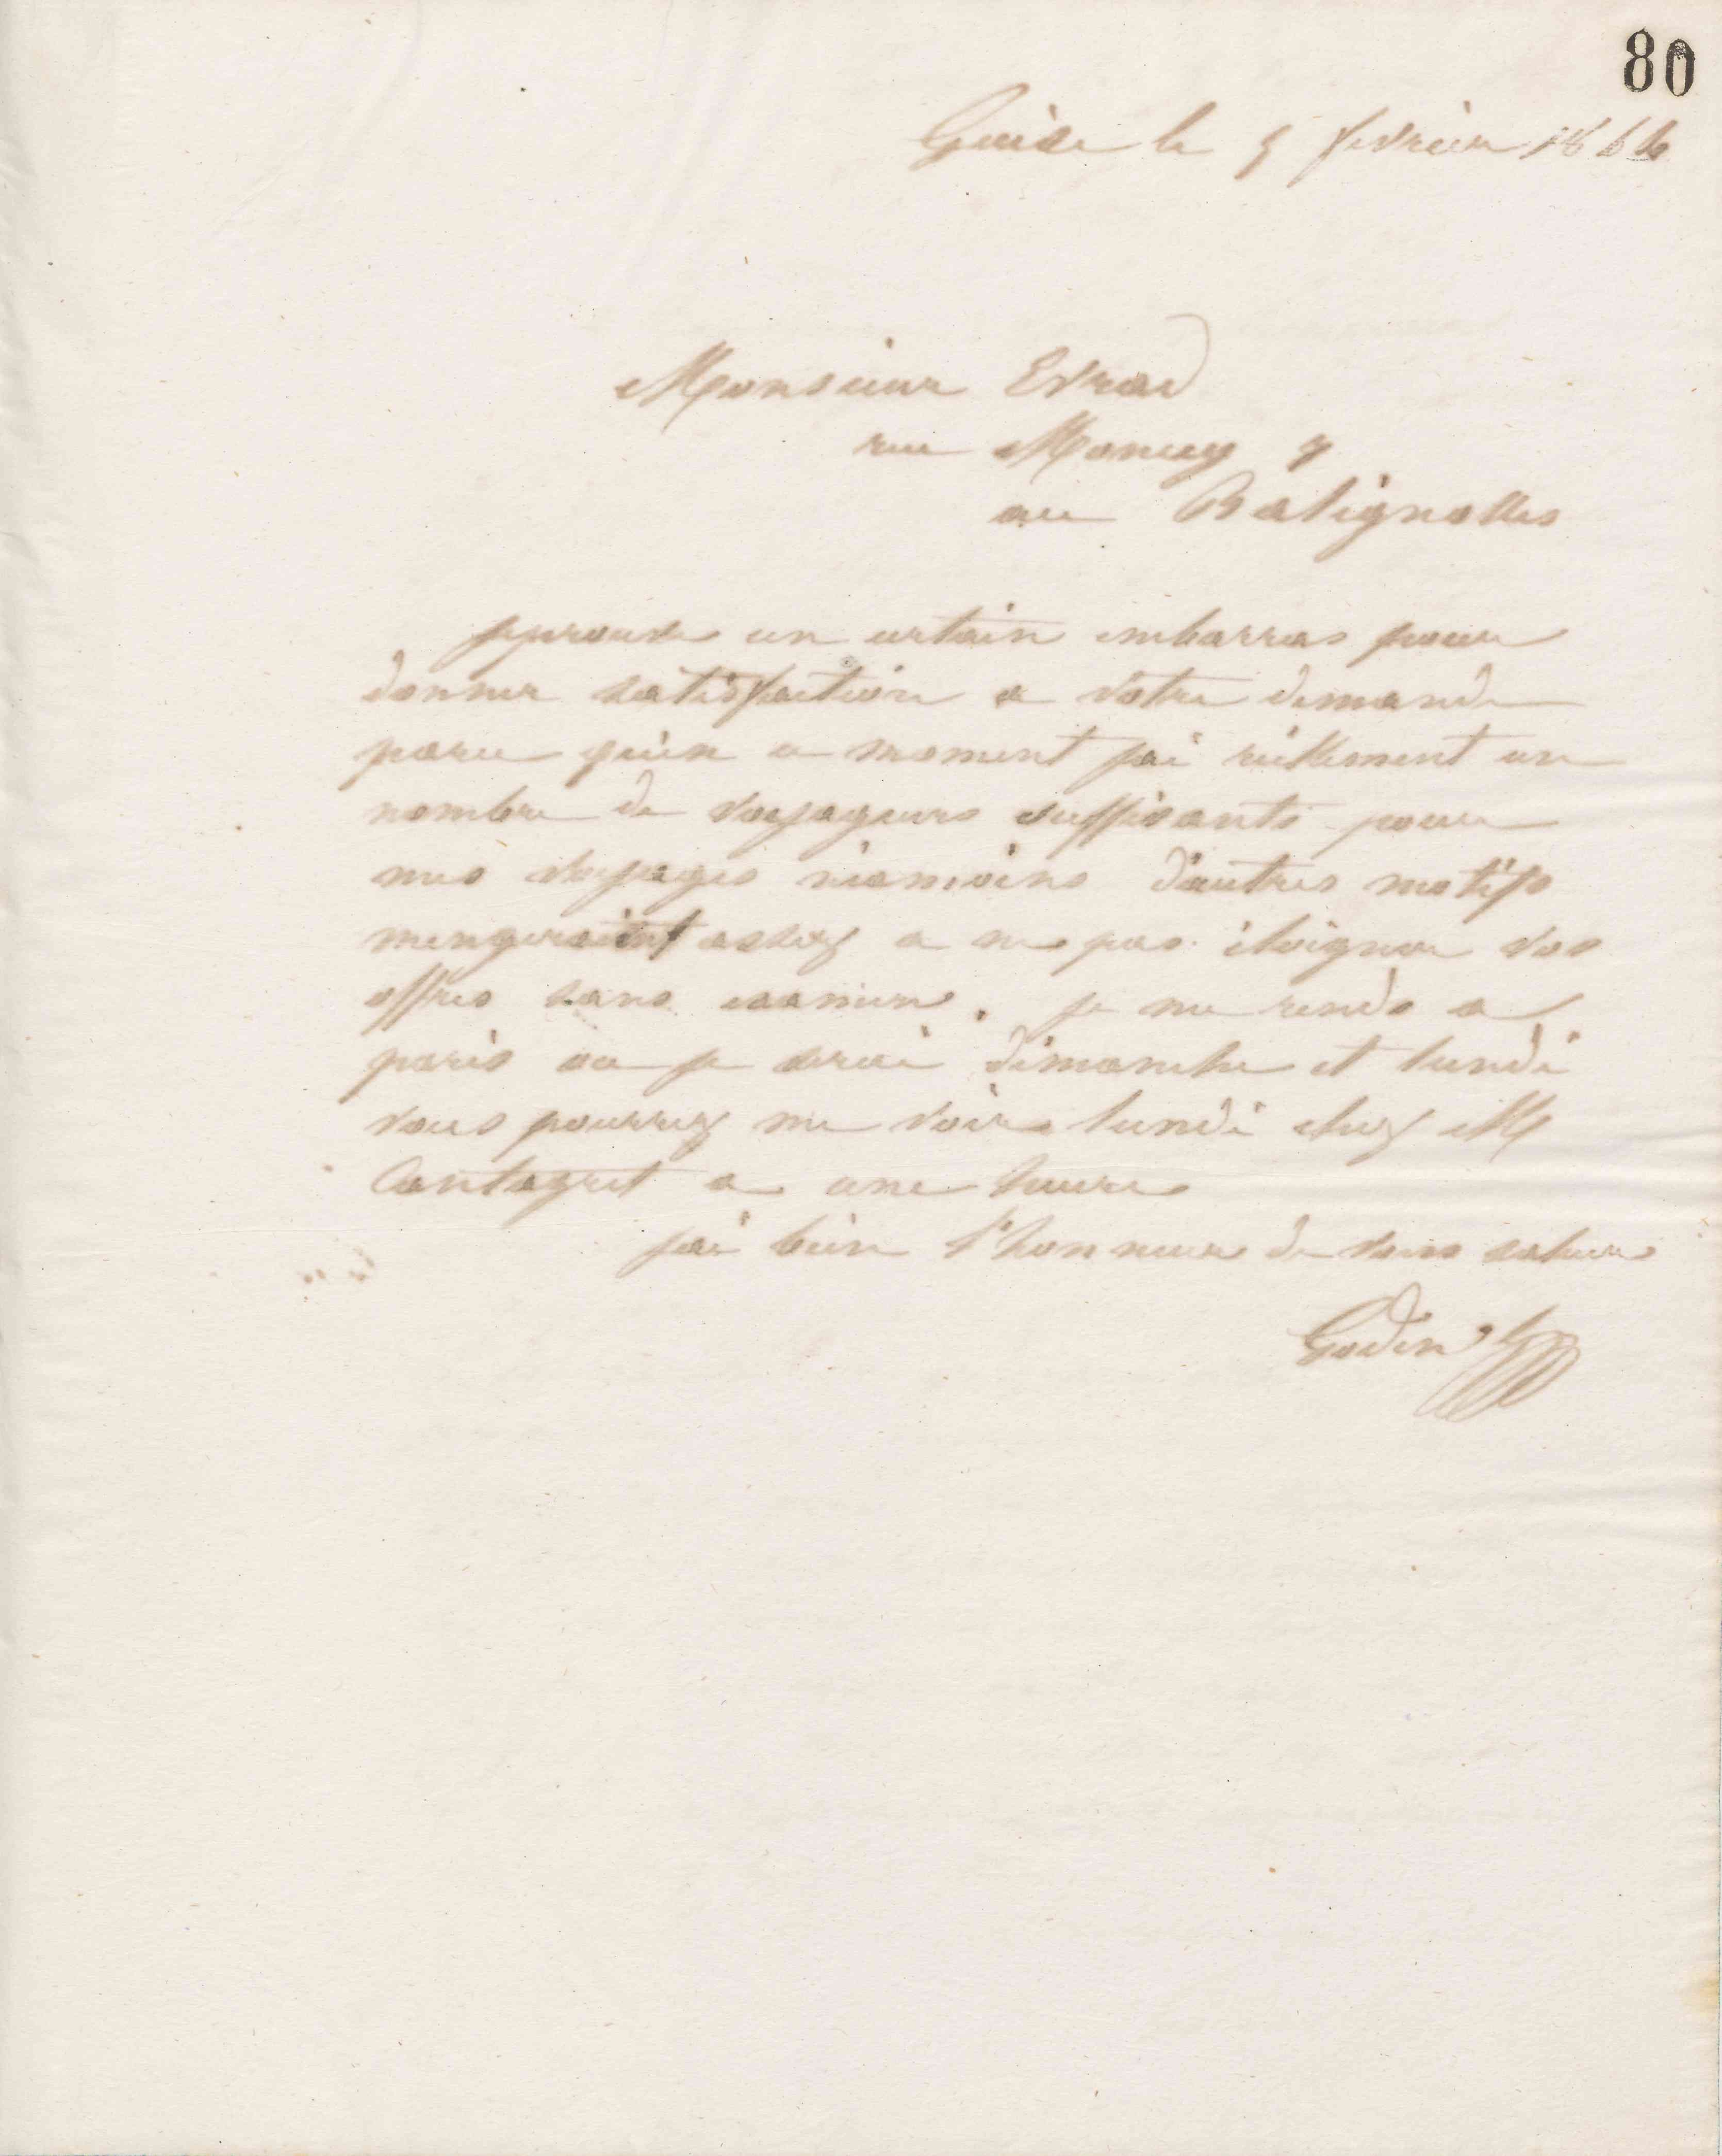 80
Guise le 5 fevrier 1864
Monsieur Evrad
rue Moncey 7
au Batignolles
jeprouve un certain embarras pour
donner satisfaction a votre demande
parce quèn ce moment jai réellement un
nombre de voyageurs suffisants pour
mes voyages néamoins d'autres motifs
mengageraient assez a ne pas éloigner vos
offres sans examen. je me rends a
paris ou je serai dimanche et lundi
vous pourrez me voir lundi chez M
Cantagrel a une heure
jai bien l'honneur de vous saluer
Godin